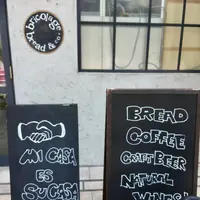 bricolage
bread & co.
MI CASA
ES
SU CASA
BREAD
COFFEE
CRAFT BEER
NATURAL
WINES!